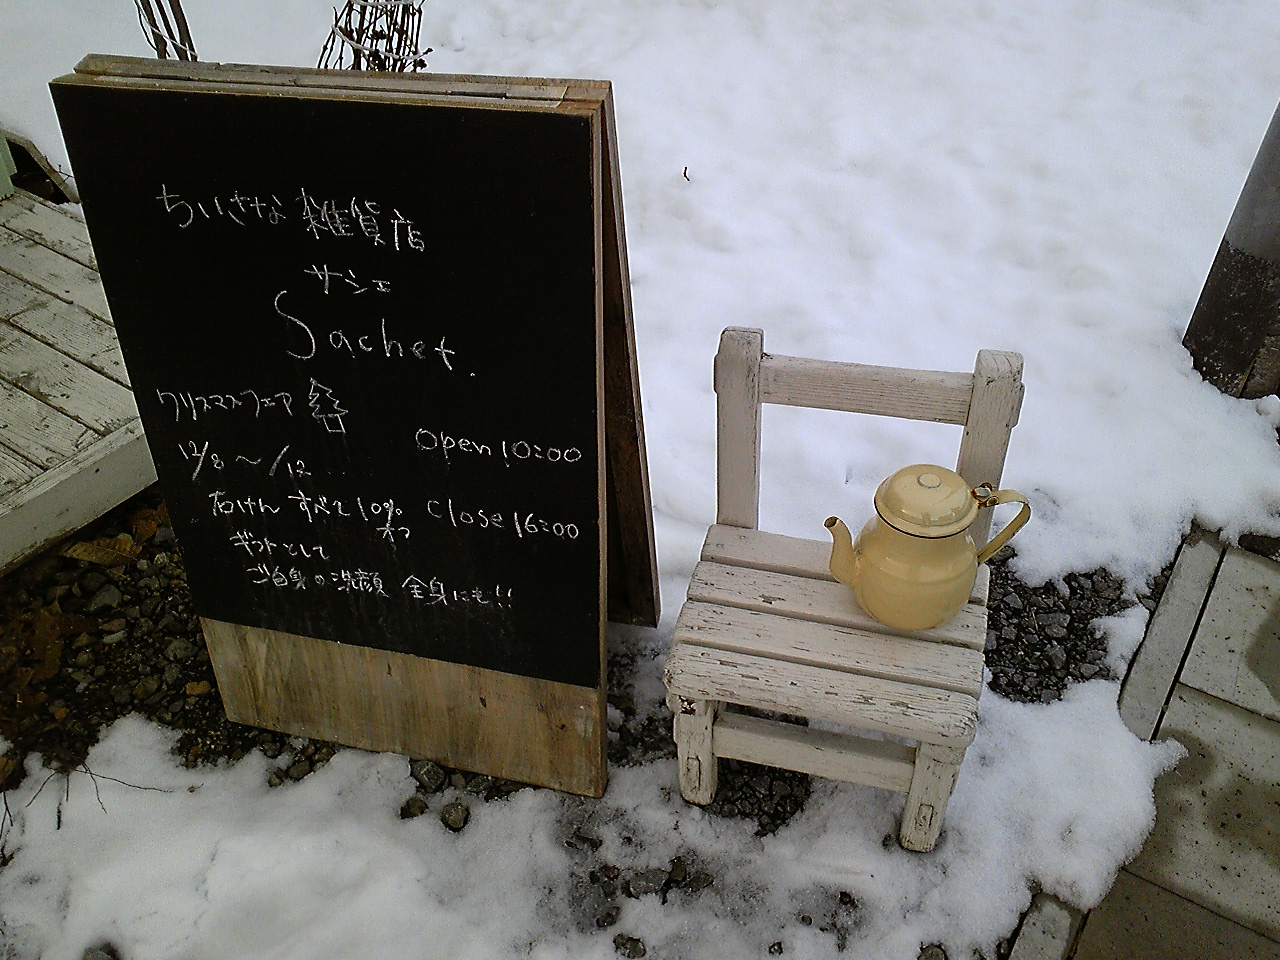 ちいさな 雑貨店
サシェ
Sachet.
クリスマスフェア
12/8 〜 /12 ...
open 10:00
石けん すべて 10% オフ
close 16:00
ギフトとして
ご自身の洗顔 全身にも!!